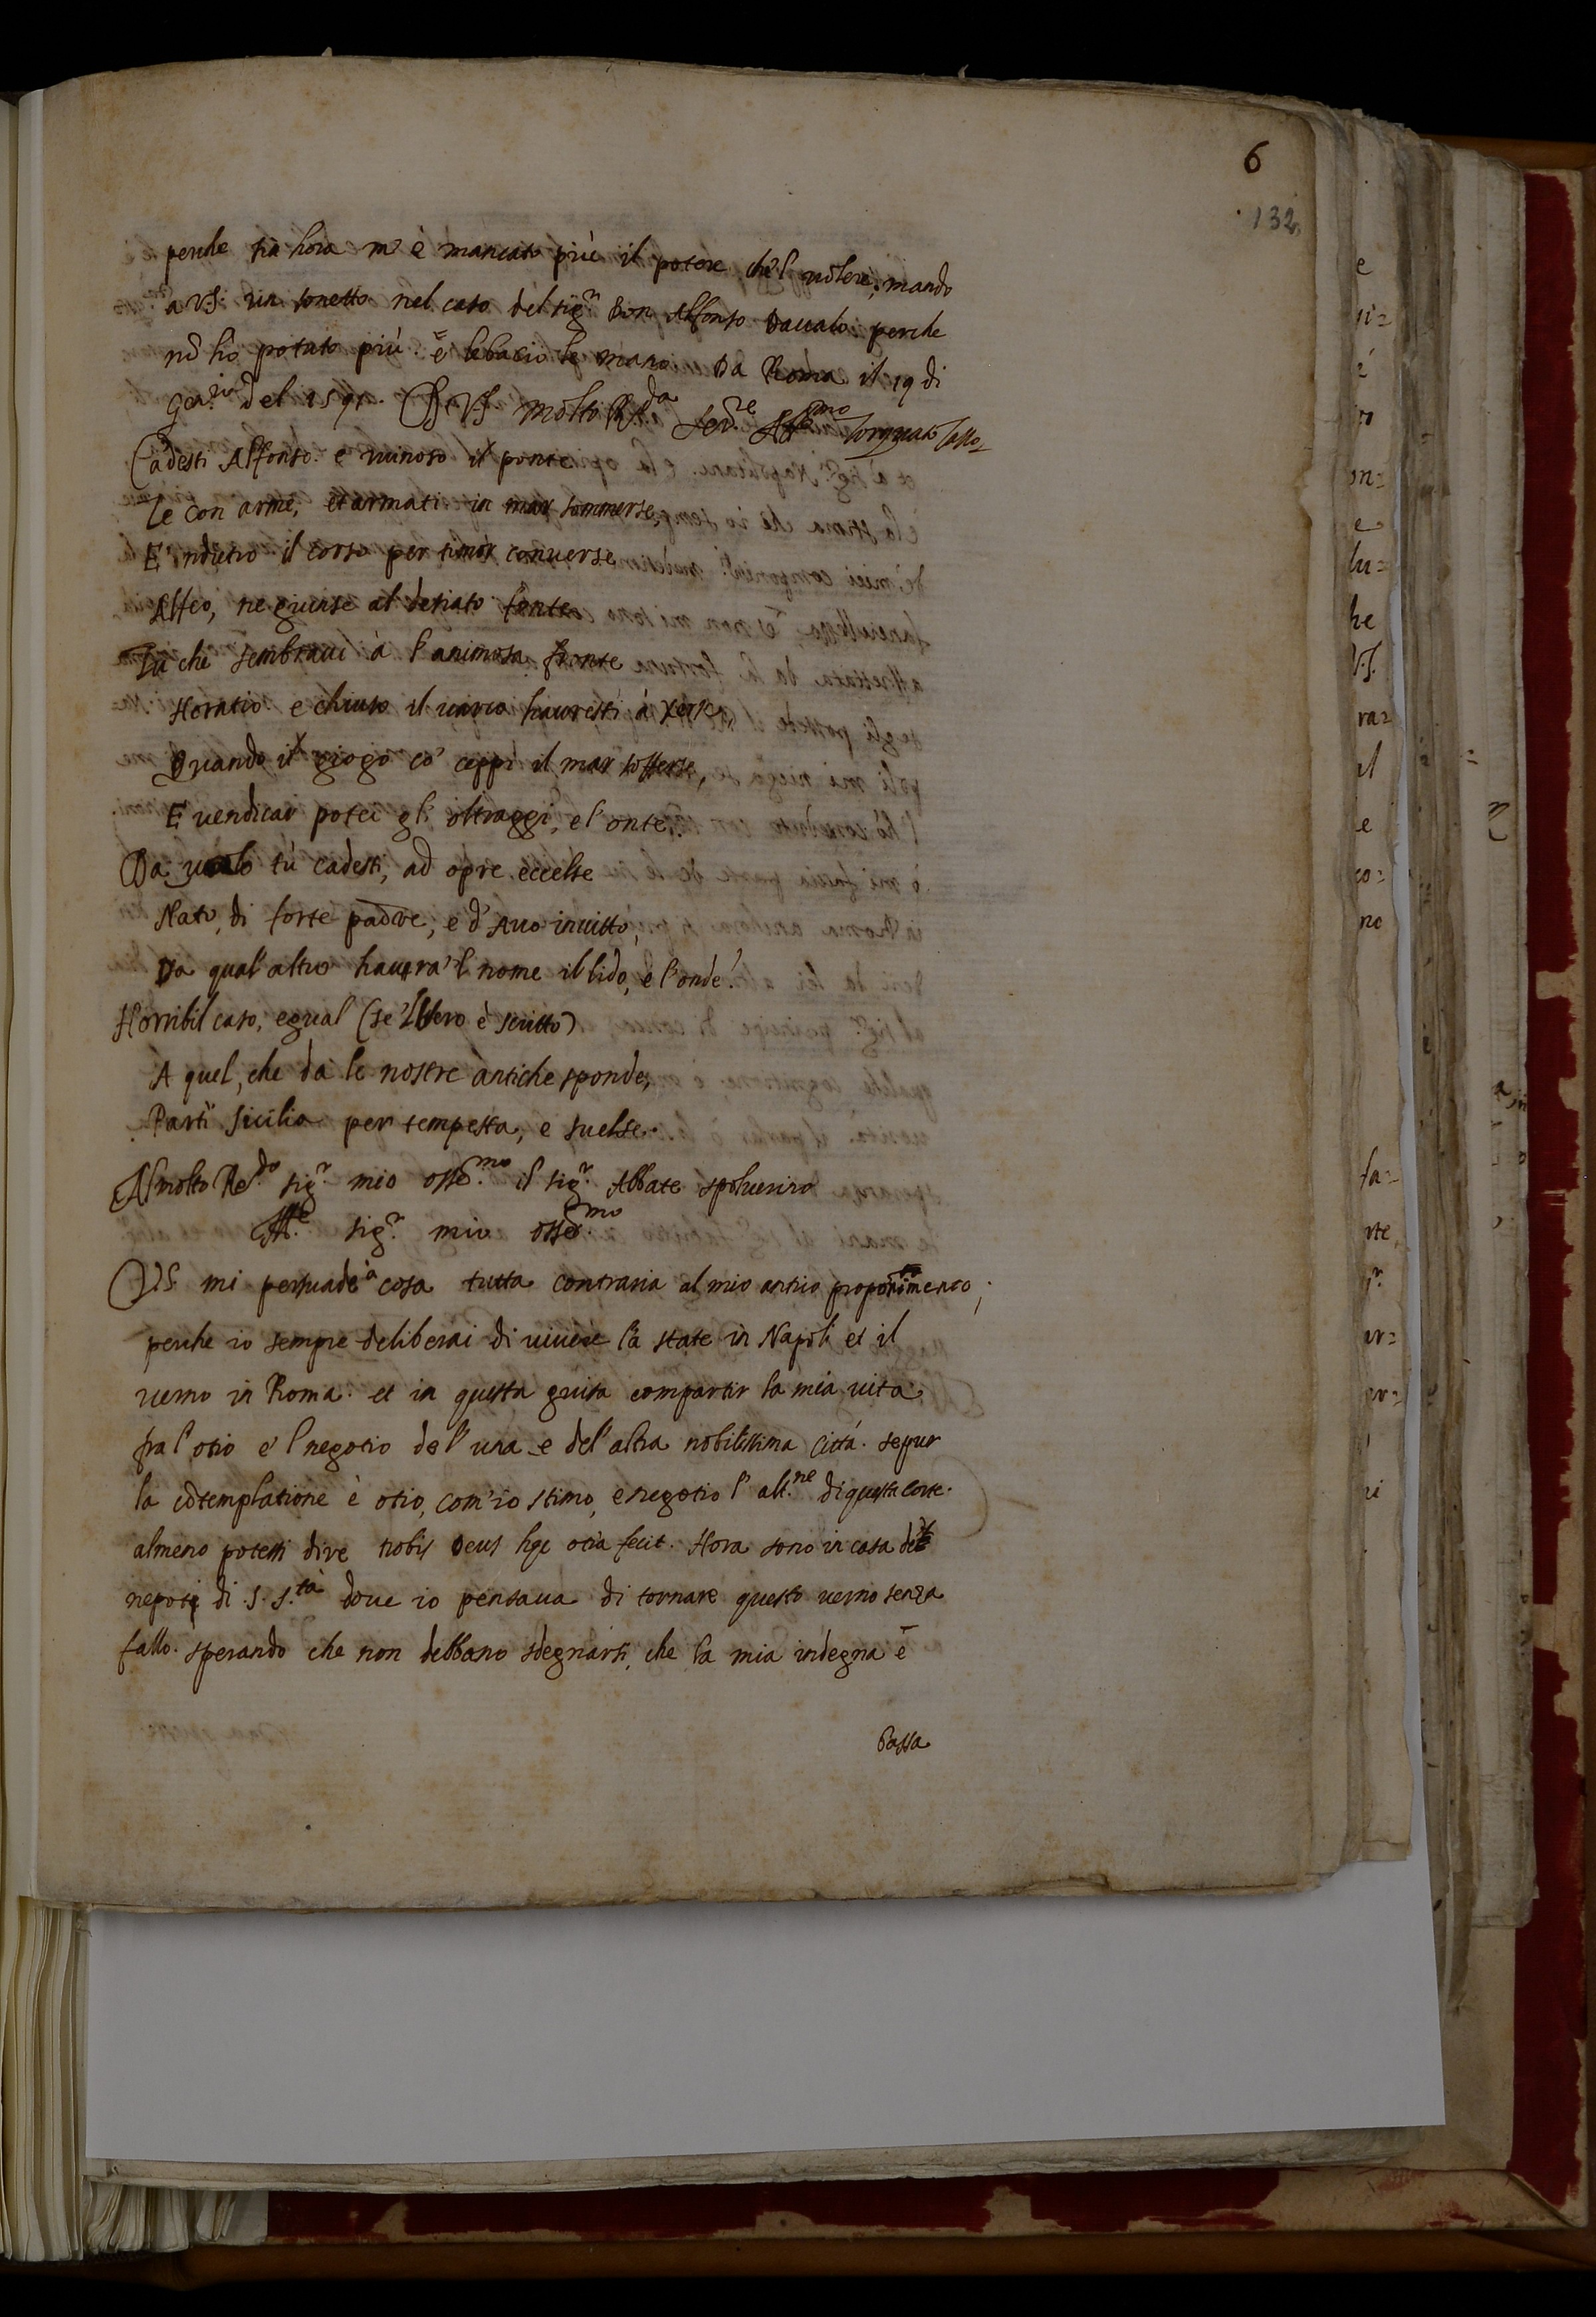 6
132
perche fin hora m'è mancato più il potere che'l uolere; mando
a VS. un sonetto nel caso del sig.r Don Alfonso Daualo perche
nō ho potuto più. e le bacio le mano. Da Roma il 19 di
Gen.io del 1591. Di VS molto R.da Ser.re Aff.mo Torquato Tasso
Cadesti Alfonso. e ruinoso il ponte
Te con arme, et armati in mar sommerse
E 'ndietro il corso per timor conuerse
Alfeo, ne giunse al desiato fonte
Tu che sembraui à l'animosa fronte
Horatio e chiuso il uarco hauresti à Xerse
Quando il giogo co' ceppi il mar sofferse,
E vendicar potei gli oltraggi, e l'onte,
Da ualo tù cadesti, ad opre eccelse
Nato, di forte padre, e d'Auo inuitto,
Da qual'altro haurà 'l nome il lido, e l'onde?
Horribil caso, egual (se 'l uero è scritto)
A quel, che da le nostre antiche sponde,
Partì Sicilia per tempesta, e suelse.
Al molto Re.do sig.r mio osse.mo il sig.r Abbate spoluerino
Ill.e sig.r mio osser.mo
VS. mi persuade à cosa tutta contraria al mio antico proponimento;
perche io sempre deliberai di uiuere la state in Napoli et il
uerno in Roma. et in questa guisa compartir la mia uita
fra l'otio e 'l negotio de l'una e del'altra nobilissima Città. se pur
la cōtemplatione è otio, com'io stimo, e negotio l'att.ne di questa corte.
almeno potessi dire nobis Deus hęc otia fecit. Hora sono in casa de
nepoti di S. S.tà doue io pensaua di tornare questo uerno senza
fallo. sperando che non debbano sdegnarsi, che la mia indegna e
Bassa